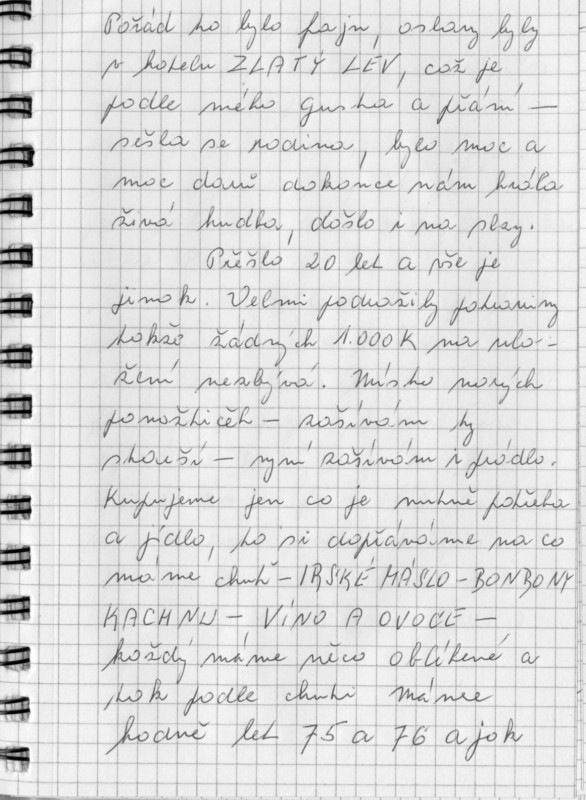 Pořád to bylo fajn, oslavy byly
v hotelu ZLATÝ LEV, což je
podle mého gusta a přání —
sešla se rodina, bylo moc a
moc darů dokonce nám hrála
živá hudba, došlo i na slzy.
Přešlo 20 let a vše je
jinak. Velmi podražily potraviny
takže žádných 1.000 K na ulo-
žení nezbývá. Místo nových
ponožticěh — zašívám ty
starší — nyní zašívám i prádlo.
Kupujeme jen co je nutně potřeba
a jídlo, to si dopřáváme na co
máme chuť — IRSKÉ MÁSLO — BONBONY
KACHNU — VÍNO A OVOCE —
každý máme něco oblíbené a
tak podle chuti máme
hodně let 75 a 76 a jak